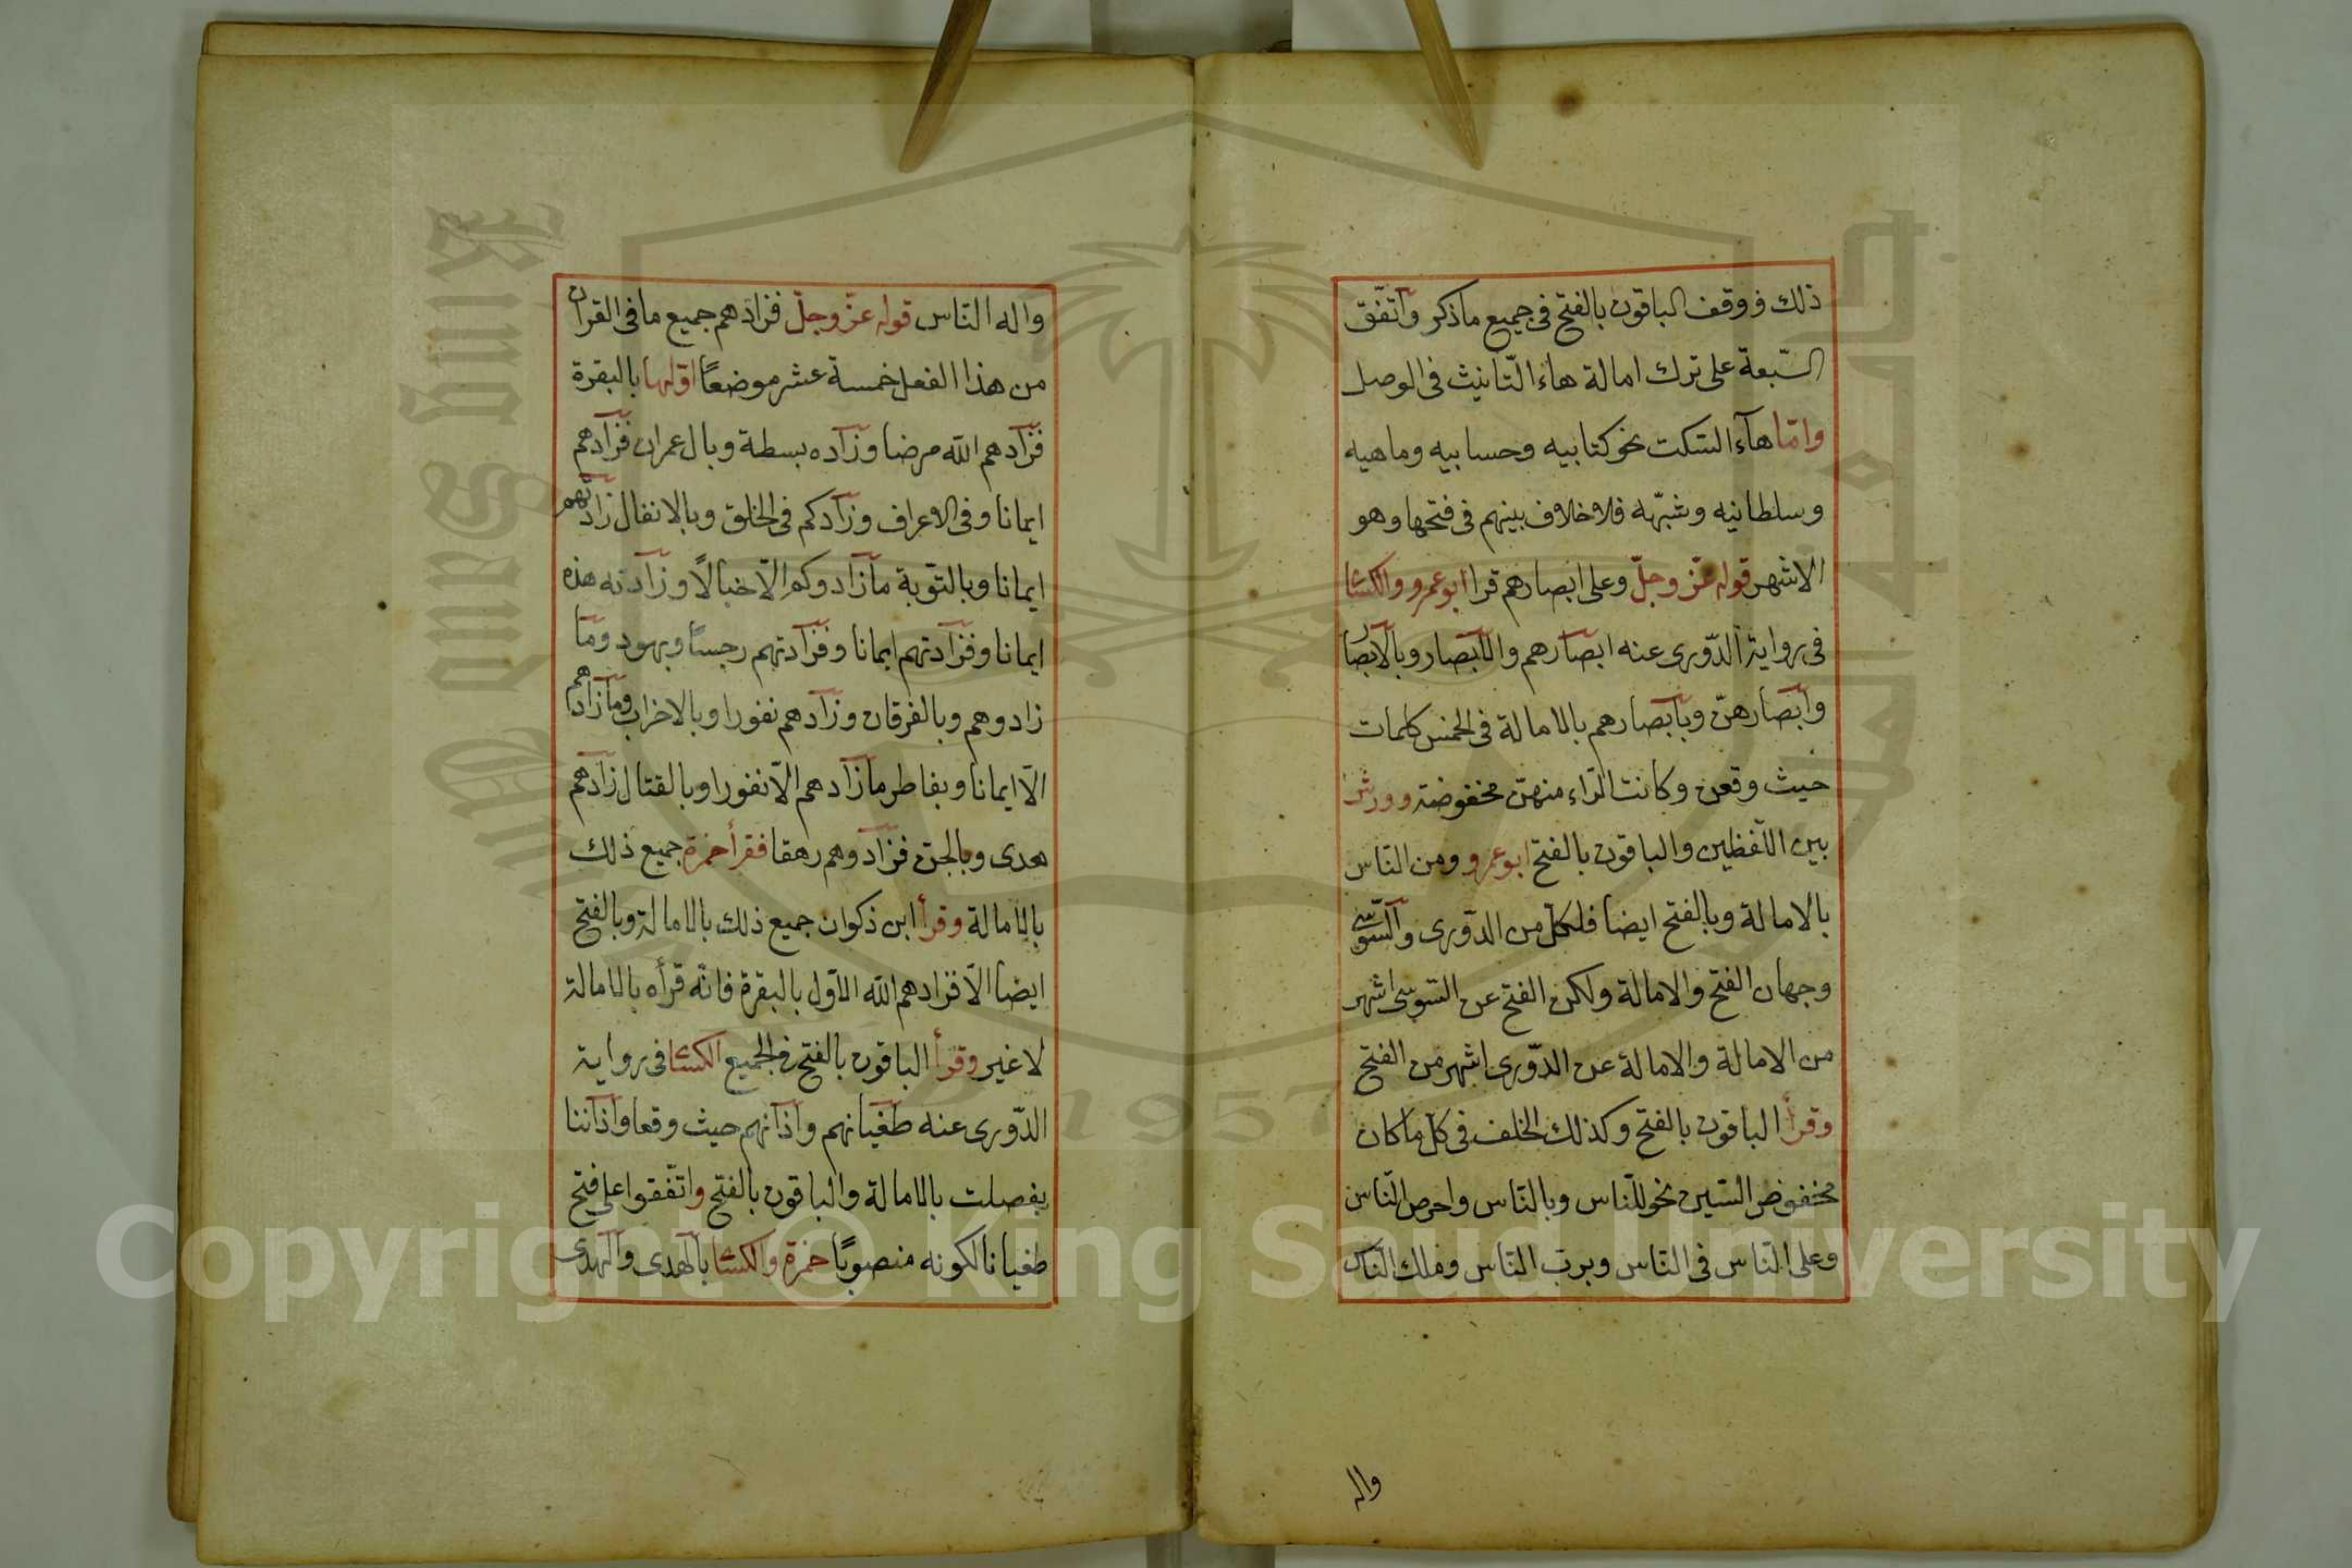 ذلك فوقف الباقون بالفتح فى جميع ماذكر واتفّق
السّبعة على ترك امالة هاء التّانيث فى الوصل
وامّا هآء السّكت نحو كتابيه وحسابيه وماهيه
وسلطانيه وشبّهه فلا خلاف بينهم فى فتحها وهو
الاشهر قوله عزّ وجلّ وعلى ابصارهم قرا ابو عمرو والكسا
فى رواية الدّورى عنه ابصارهم والابصار وبالابصار
وابصارهنّ وبابصارهم بالامالة فى الخمس كلمات
حيث وقعن وكانت الرّاء منهنّ مخفوضة وورش
بين اللّفظين والباقون بالفتح ابو عمرو ومن النّاس
بالامالة وبالفتح ايضا فلكلّ من الدّورى والسّوسى
وجهان الفتح والامالة ولكن الفتح عن السّوسى اشهر
من الامالة والامالة عن الدّورى اشهر من الفتح
وقرأ الباقون بالفتح وكذلك الخلف فى كلّ ما كان
مخفوض السّين نحو للنّاس وبالنّاس واحرص النّاس
وعلى النّاس فى النّاس وبربّ النّاس وملك النّاس
واله
واله النّاس قوله عزّ وجلّ فزادهم جميع ما فى القرآن
من هذا الفعل خمسة عشر موضعًا اوّلها بالبقرة
فزادهم الله مرضا وزاده بسطة وبال عمران فزادهم
ايمانا وفى الاعراف وزادكم فى الخلق وبالانفال زادتهم
ايمانا وبالتّوبة مازادوكم الّا خبالًا وزادته هذه
ايمانا وفزادتهم ايمانا وفزادتهم رجسًا وبهود وما
زادوهم وبالفرقان وزادهم نفورا وبالاحزاب ومازادهم
الّا ايمانا وبفاطر مازادهم الّا نفورا وبالقتال زادهم
هدى وبالجنّ فزادوهم رهقا فقرأ حمزة جميع ذلك
بالامالة وقرأ ابن ذكوان جميع ذلك بالامالة وبالفتح
ايضا الّا فزادهم الله الاوّل بالبقرة فانّه قرأه بالامالة
لا غير وقرأ الباقون بالفتح فى الجميع الكسا فى رواية
الدّورى عنه طغيانهم واذانهم حيث وقعا واذاننا
بفصلت بالامالة والباقون بالفتح واتّفقوا على فتح
طغيانا لكونه منصوبًا حمزة والكسا بالهدى والهدى
Copyright © King Saud University
King Saud University
1957